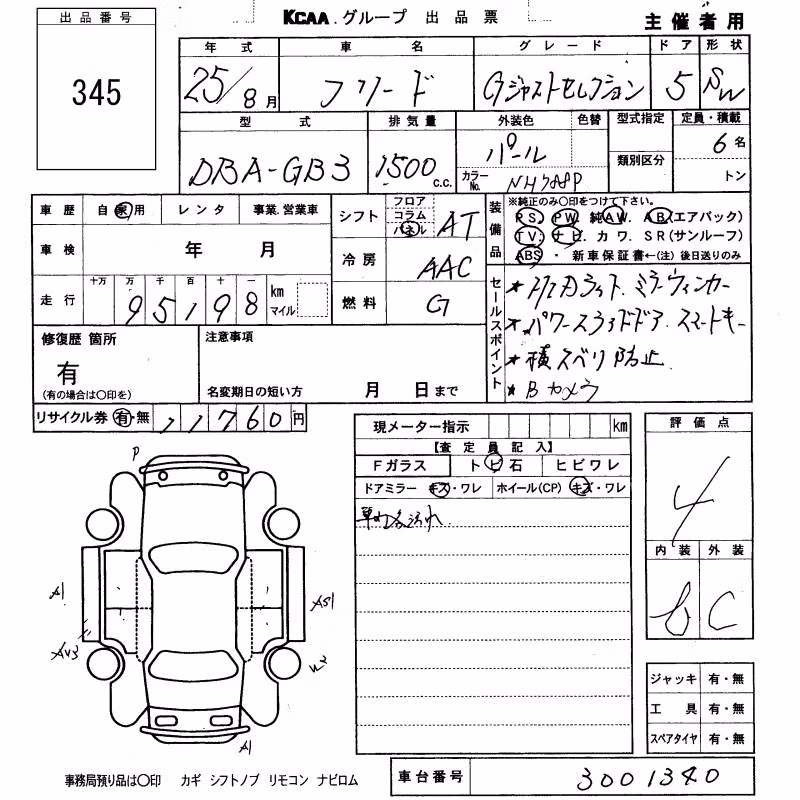 出品番号
345
KCAA.グループ 出品票
主催者用
年式 車名 グレード ドア 形状
25/8月 フリード Gジャストセレクション 5 SW
型式 排気量 外装色 色替 型式指定 定員・積載
DBA-GB3 1500c.c. パール 6名
カラーNo. NH788P 類別区分 トン
車歴 自家用 レンタ 事業.営業車
車検 年 月
走行 十万 万 千 百 十 一
95198 km マイル
シフト フロア コラム パネル AT
冷房 AAC
燃料 G
装備品
※純正のみ〇印をつけて下さい。
PS. PW. 純AW. AB(エアバック)
TV. ナビ. カワ. SR(サンルーフ)
ABS ・ 新車保証書←(注) 後日送りのみ
セールスポイント
* ミラーウィンカー
* パワースライドドア スマートキー
* 横スベリ防止
* Bカメラ
修復歴 箇所
有
(有の場合は〇印を)
注意事項
名変期日の短い方 月 日まで
リサイクル券 有・無 11760円
現メーター指示 km
【査定員記入】
Fガラス トビ石 ヒビワレ
ドアミラー キズ・ワレ ホイール(CP) キズ・ワレ
評価点
4
内装 外装
b C
P
A1
AS1
AU3
A1
ジャッキ 有・無
工具 有・無
スペアタイヤ 有・無
事務局預り品は〇印 カギ シフトノブ リモコン ナビロム
車台番号 3001340